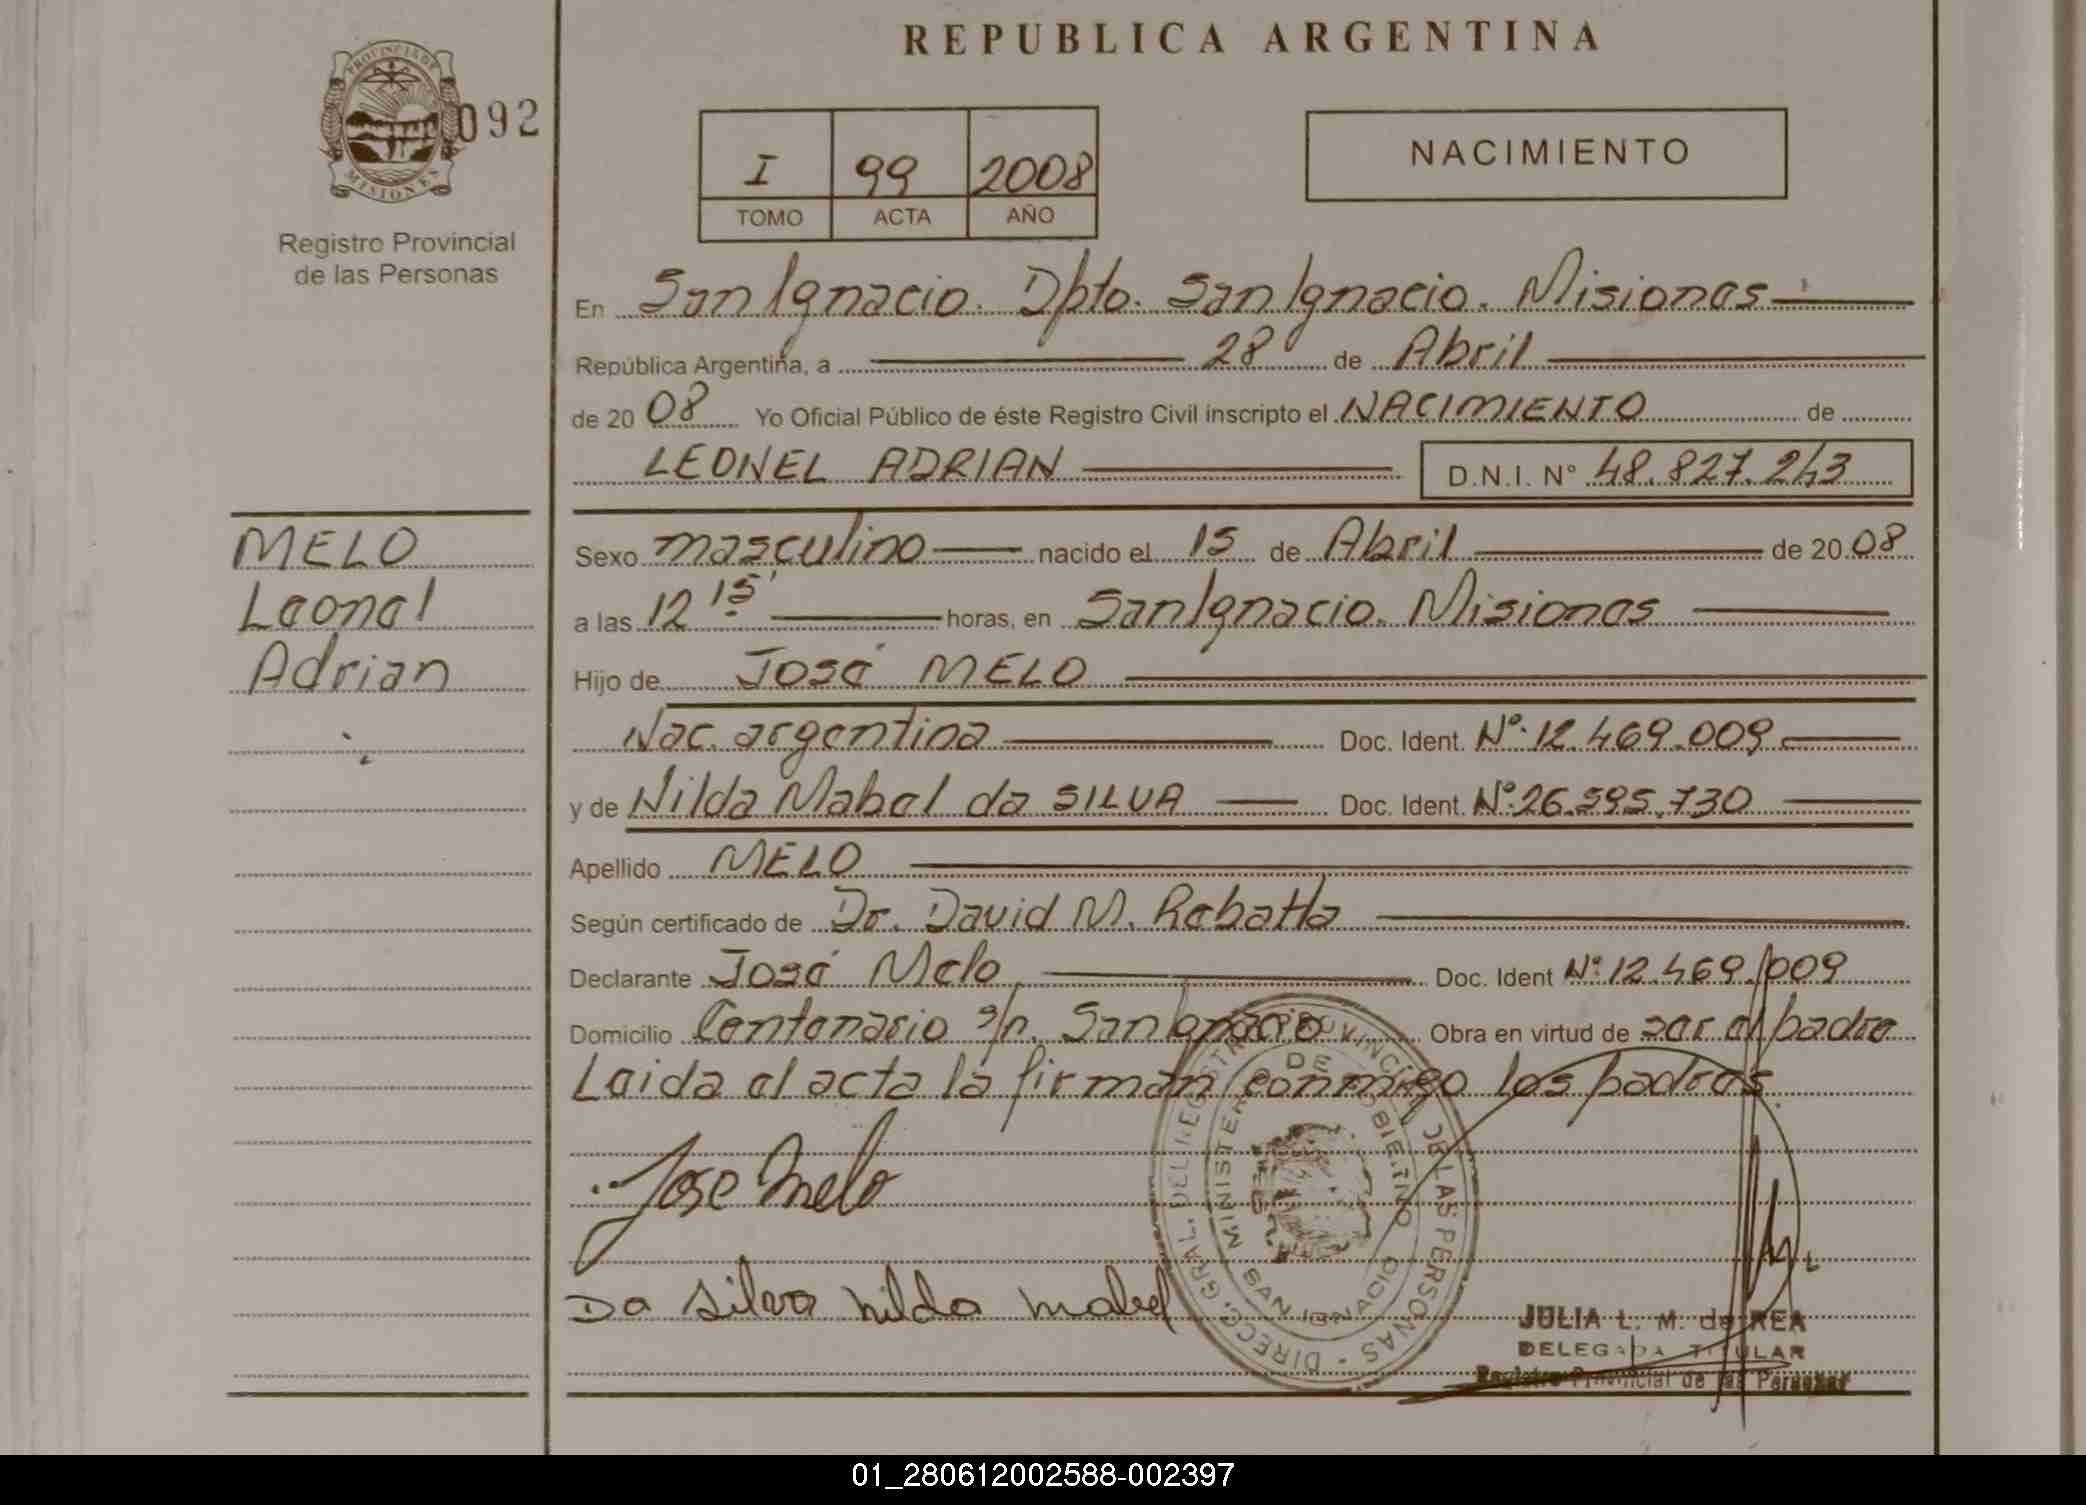 REPUBLICA ARGENTINA
PROVINCIA DE MISIONES
092
Registro Provincial
de las Personas
I 99 2008
TOMO ACTA AÑO
NACIMIENTO
En San Ignacio. Dpto. San Ignacio. Misiones
República Argentina, a 28 de Abril
de 20 08 Yo Oficial Público de éste Registro Civil inscripto el NACIMIENTO de
LEONEL ADRIAN D.N.I. N° 48.827.243
MELO
Leonel
Adrian
Sexo masculino nacido el 15 de Abril de 20 08
a las 12 15' horas, en San Ignacio. Misiones
Hijo de José MELO
Nac. argentina Doc. Ident. Nº: 12.469.009
y de Nilda Mabel da SILVA Doc. Ident. Nº: 26.595.730
Apellido MELO
Según certificado de Dr. David M. Rebatta
Declarante José Melo Doc. Ident Nº: 12.469.009
Domicilio Centenario s/n. San Ignacio Obra en virtud de ser el padre
Leida el acta la firman conmigo los padres.
Jose Melo
Da Silva nilda mabel
DIRECC. GRAL. DEL REGISTRO PROVINCIAL DE LAS PERSONAS
MINISTERIO DE GOBIERNO
SAN IGNACIO
JULIA L. M. de REA
DELEGADA TITULAR
Registro Provincial de las Personas
01_280612002588-002397